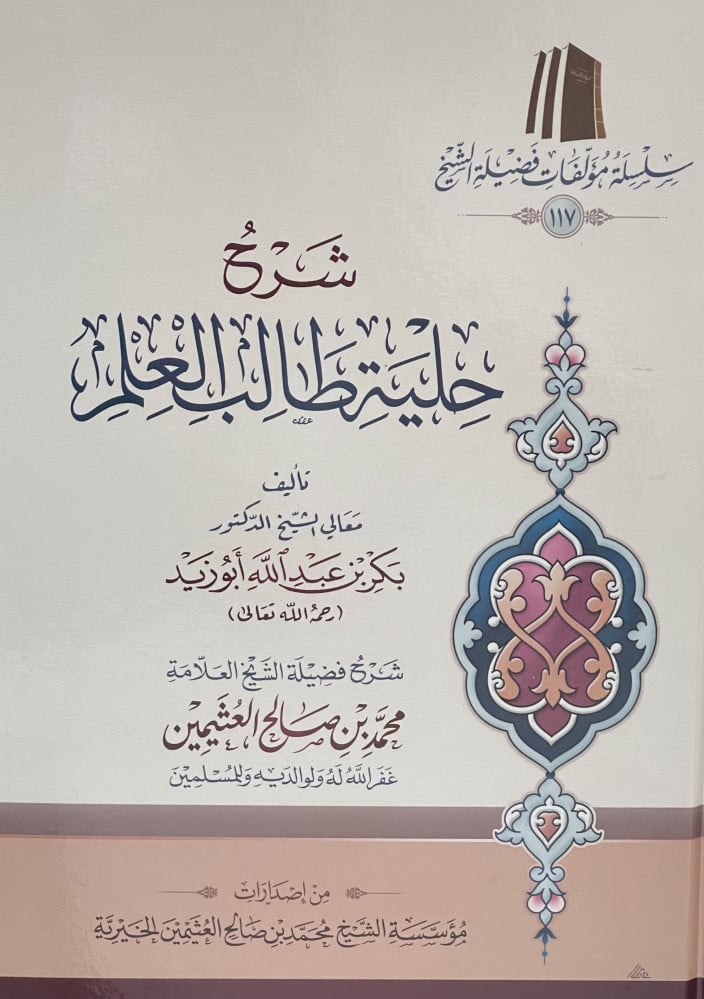 سِلْسِلَةُ مُؤَلَّفَاتِ فَضِيْلَةِ الشَّيْخِ
١١٧
شَرْحُ
حِلْيَةِ طَالِبِ الْعِلْمِ
تأليف
مَعَالي الشَّيْخ الدّكتور
بَكْر بْن عَبْدِ اللَّهِ أَبُو زَيْد
(رحمهُ الله تعَالىٰ)
شَرْحُ فَضِيْلَة الشَّيْخ العَلَّامَة
محمَّد بْن صَالح العُثَيمين
غَفَر اللَّهُ لَهُ وَلوالدَيهِ وَللمُسْلِمِيْن
مِنْ إصْدَارَات
مُؤَسَّسَة الشَّيْخ مُحَمَّد بْن صَالِح العُثَيْمِيْن الخَيْرِيَّة